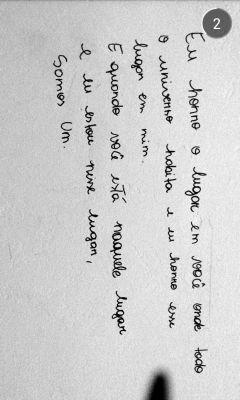 2
Eu honro o lugar em você onde todo
o universo habita e eu honro esse
lugar em mim.
E quando você está naquele lugar
e eu estou nesse lugar,
Somos Um.